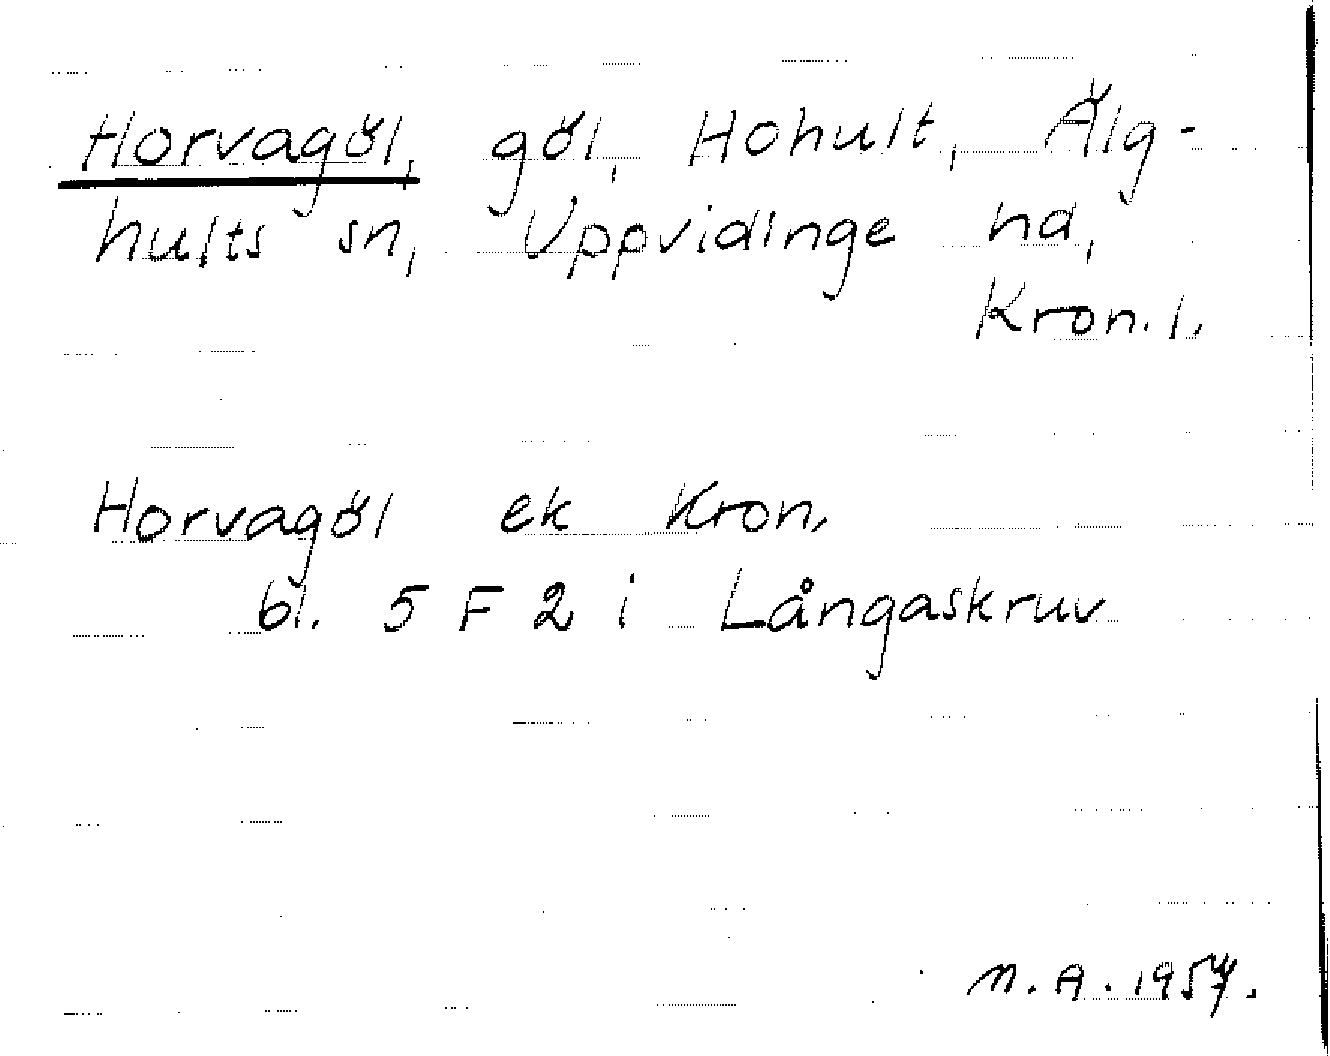 Horvagöl, göl, Hohult, Älg-
hults sn, Uppvidinge hd,
Kron. l.
Horvagöl ek Kron.
bl. 5 F 2 i Långaskruv
N. A. 1957.